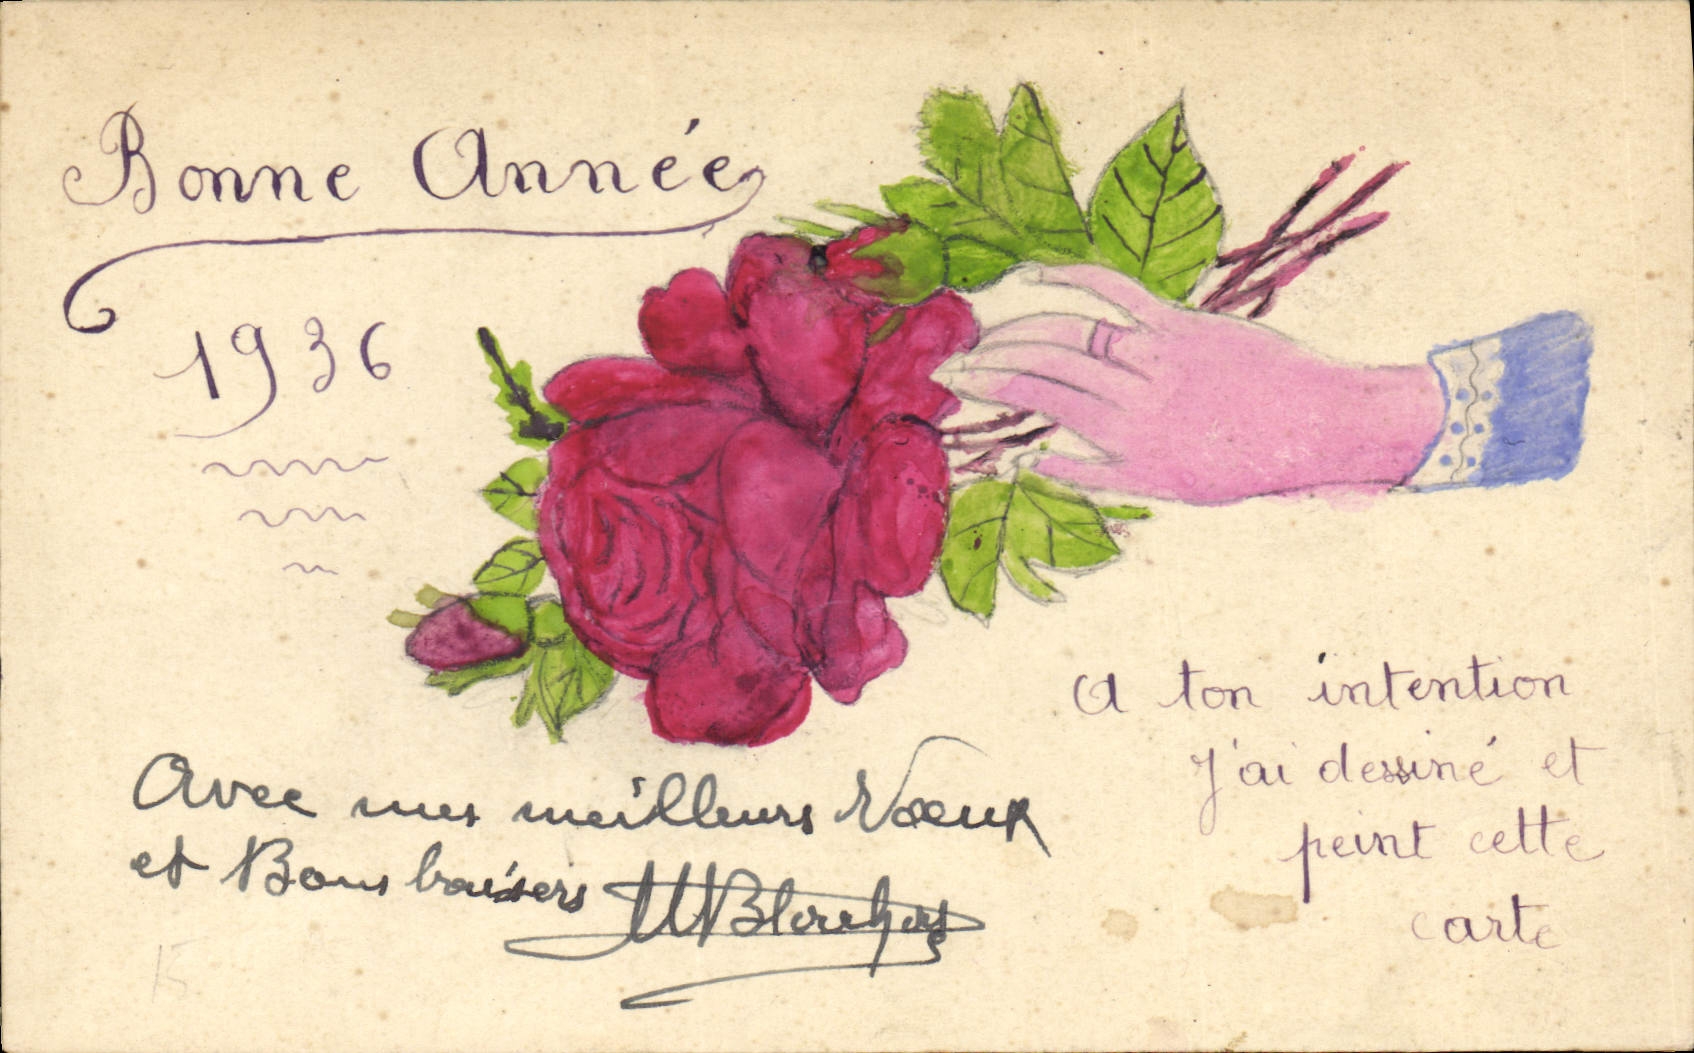 Bonne Année
1936
A ton intention
J'ai dessiné et
peint cette
carte
Avec mes meilleurs Voeux
et Bons baisers
15